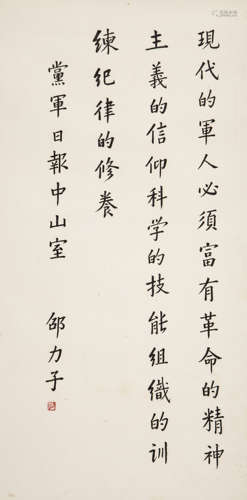 現代的軍人必須富有革命的精神
主義的信仰科学的技能組織的训
練紀律的修養
黨軍日報中山室　邵力子